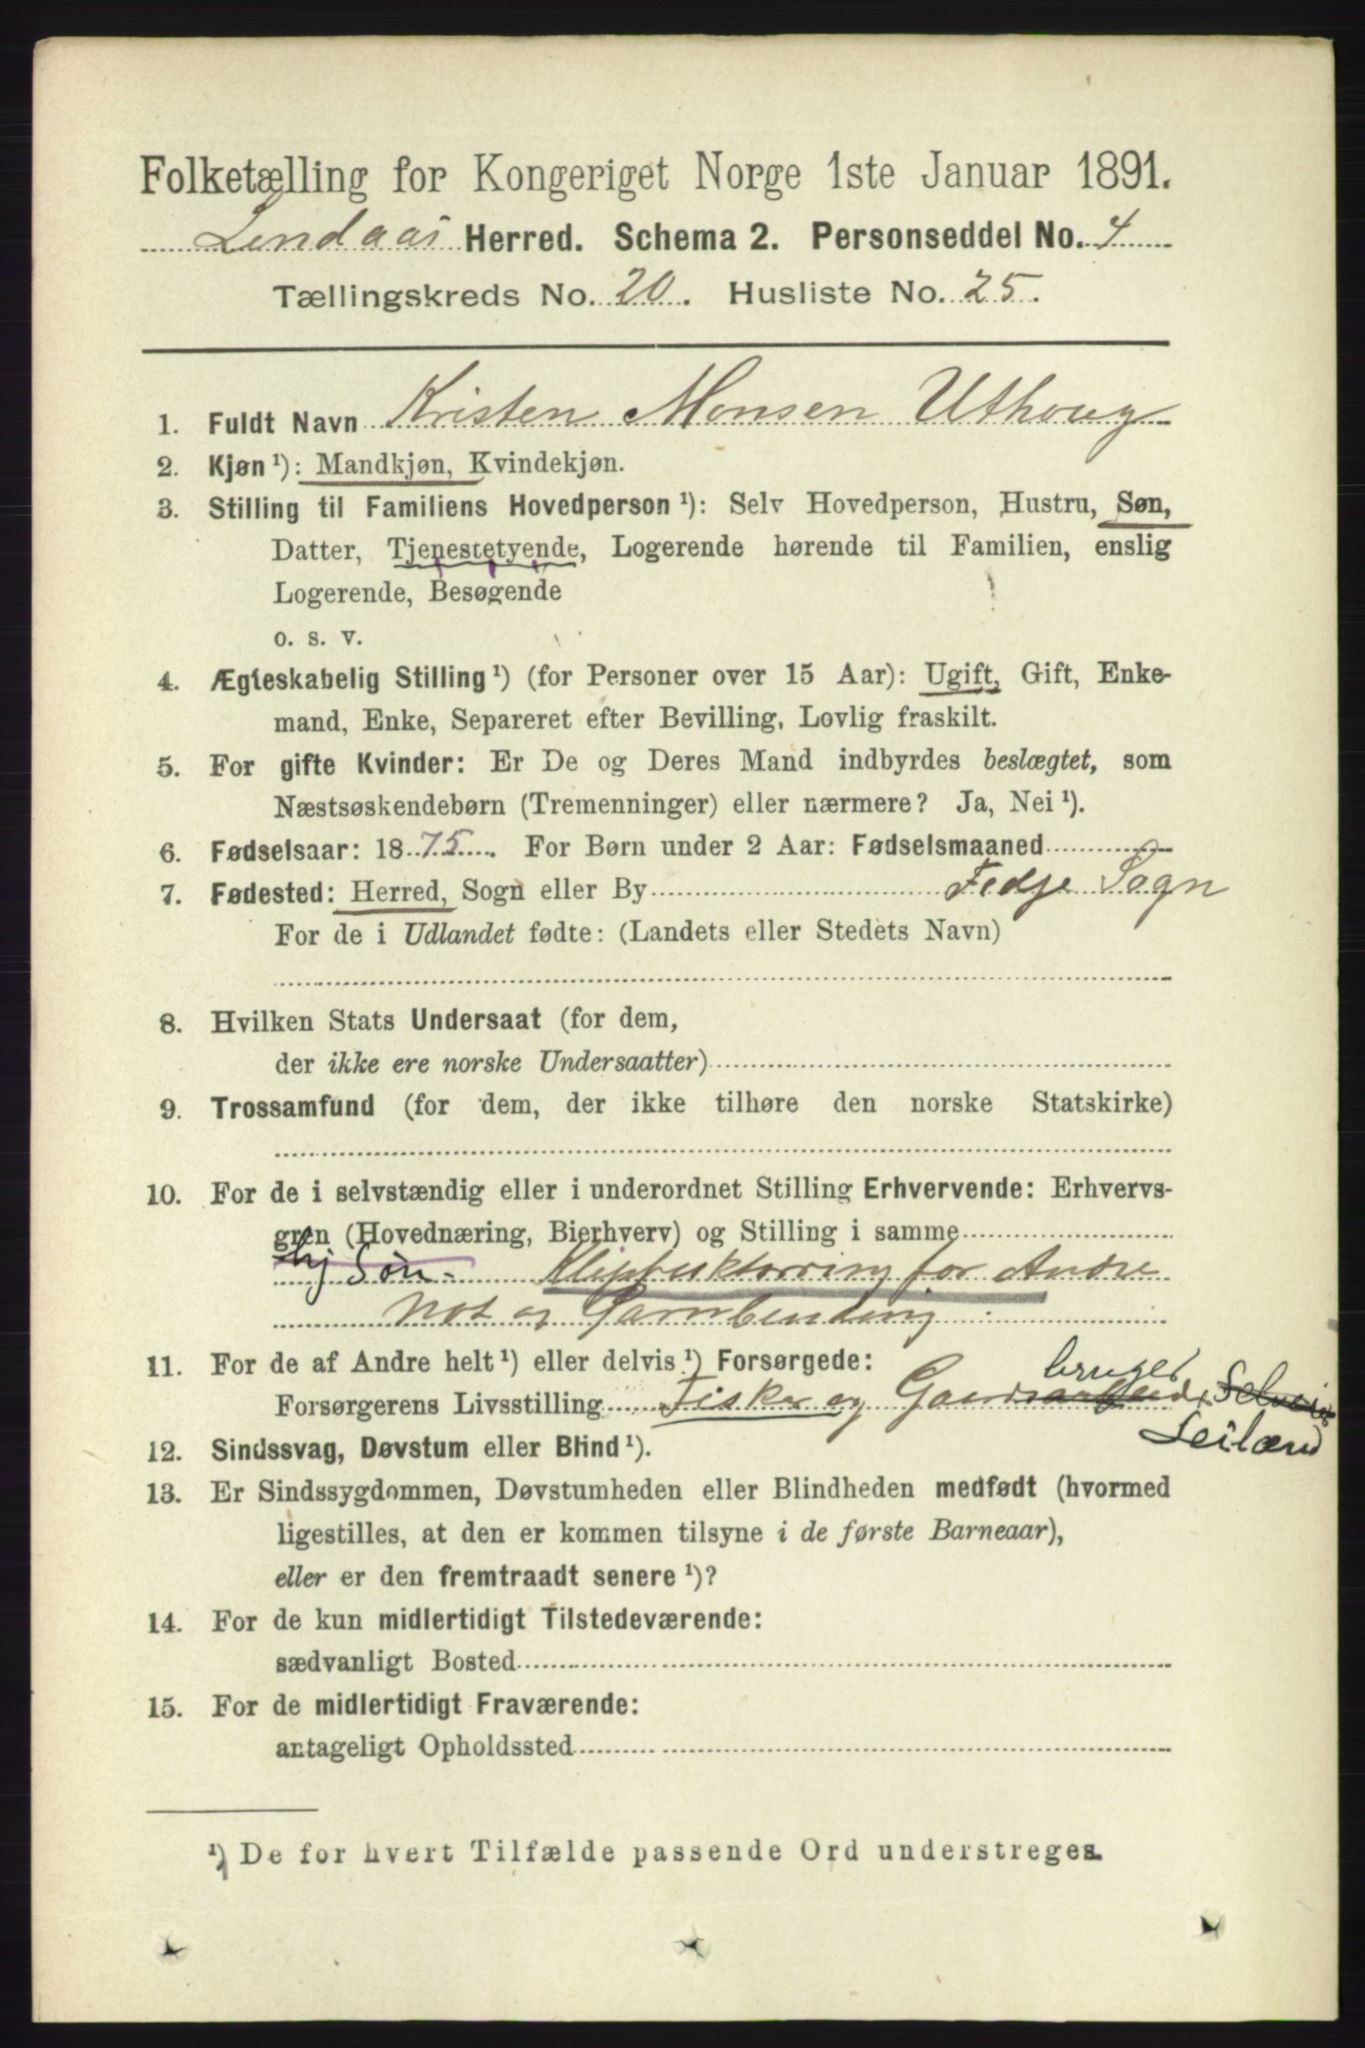 Folketælling for Kongeriget Norge 1ste Januar 1891.
Lindaas Herred. Schema 2. Personseddel No. 4
Tællingskreds No. 20. Husliste No. 25.
1. Fuldt Navn Kristen Monsen Uthoug
2. Kjøn ¹): Mandkjøn, Kvindekjøn.
3. Stilling til Familiens Hovedperson ¹): Selv Hovedperson, Hustru, Søn,
Datter, Tjenestetyende, Logerende hørende til Familien, enslig
Logerende, Besøgende
o. s. v.
4. Ægteskabelig Stilling ¹) (for Personer over 15 Aar): Ugift, Gift, Enke-
mand, Enke, Separeret efter Bevilling, Lovlig fraskilt.
5. For gifte Kvinder: Er De og Deres Mand indbyrdes beslægtet, som
Næstsøskendebørn (Tremenninger) eller nærmere? Ja, Nei ¹).
6. Fødselsaar: 1875. For Børn under 2 Aar: Fødselsmaaned
7. Fødested: Herred, Sogn eller By Fedje Sogn
For de i Udlandet fødte: (Landets eller Stedets Navn)
8. Hvilken Stats Undersaat (for dem,
der ikke ere norske Undersaatter)
9. Trossamfund (for dem, der ikke tilhøre den norske Statskirke)
10. For de i selvstændig eller i underordnet Stilling Erhvervende: Erhvervs-
gren (Hovednæring, Bierhverv) og Stilling i samme
hj Søn - Klipfisktørring for Andre
Not og Garnbinding
11. For de af Andre helt ¹) eller delvis ¹) Forsørgede:
bruger
Forsørgerens Livsstilling Fisker og Gaard Selveier
Leilænd
12. Sindssvag, Døvstum eller Blind ¹).
13. Er Sindssygdommen, Døvstumheden eller Blindheden medfødt (hvormed
ligestilles, at den er kommen tilsyne i de første Barneaar),
eller er den fremtraadt senere ¹)?
14. For de kun midlertidigt Tilstedeværende:
sædvanligt Bosted
15. For de midlertidigt Fraværende:
antageligt Opholdssted
¹) De for hvert Tilfælde passende Ord understreges.